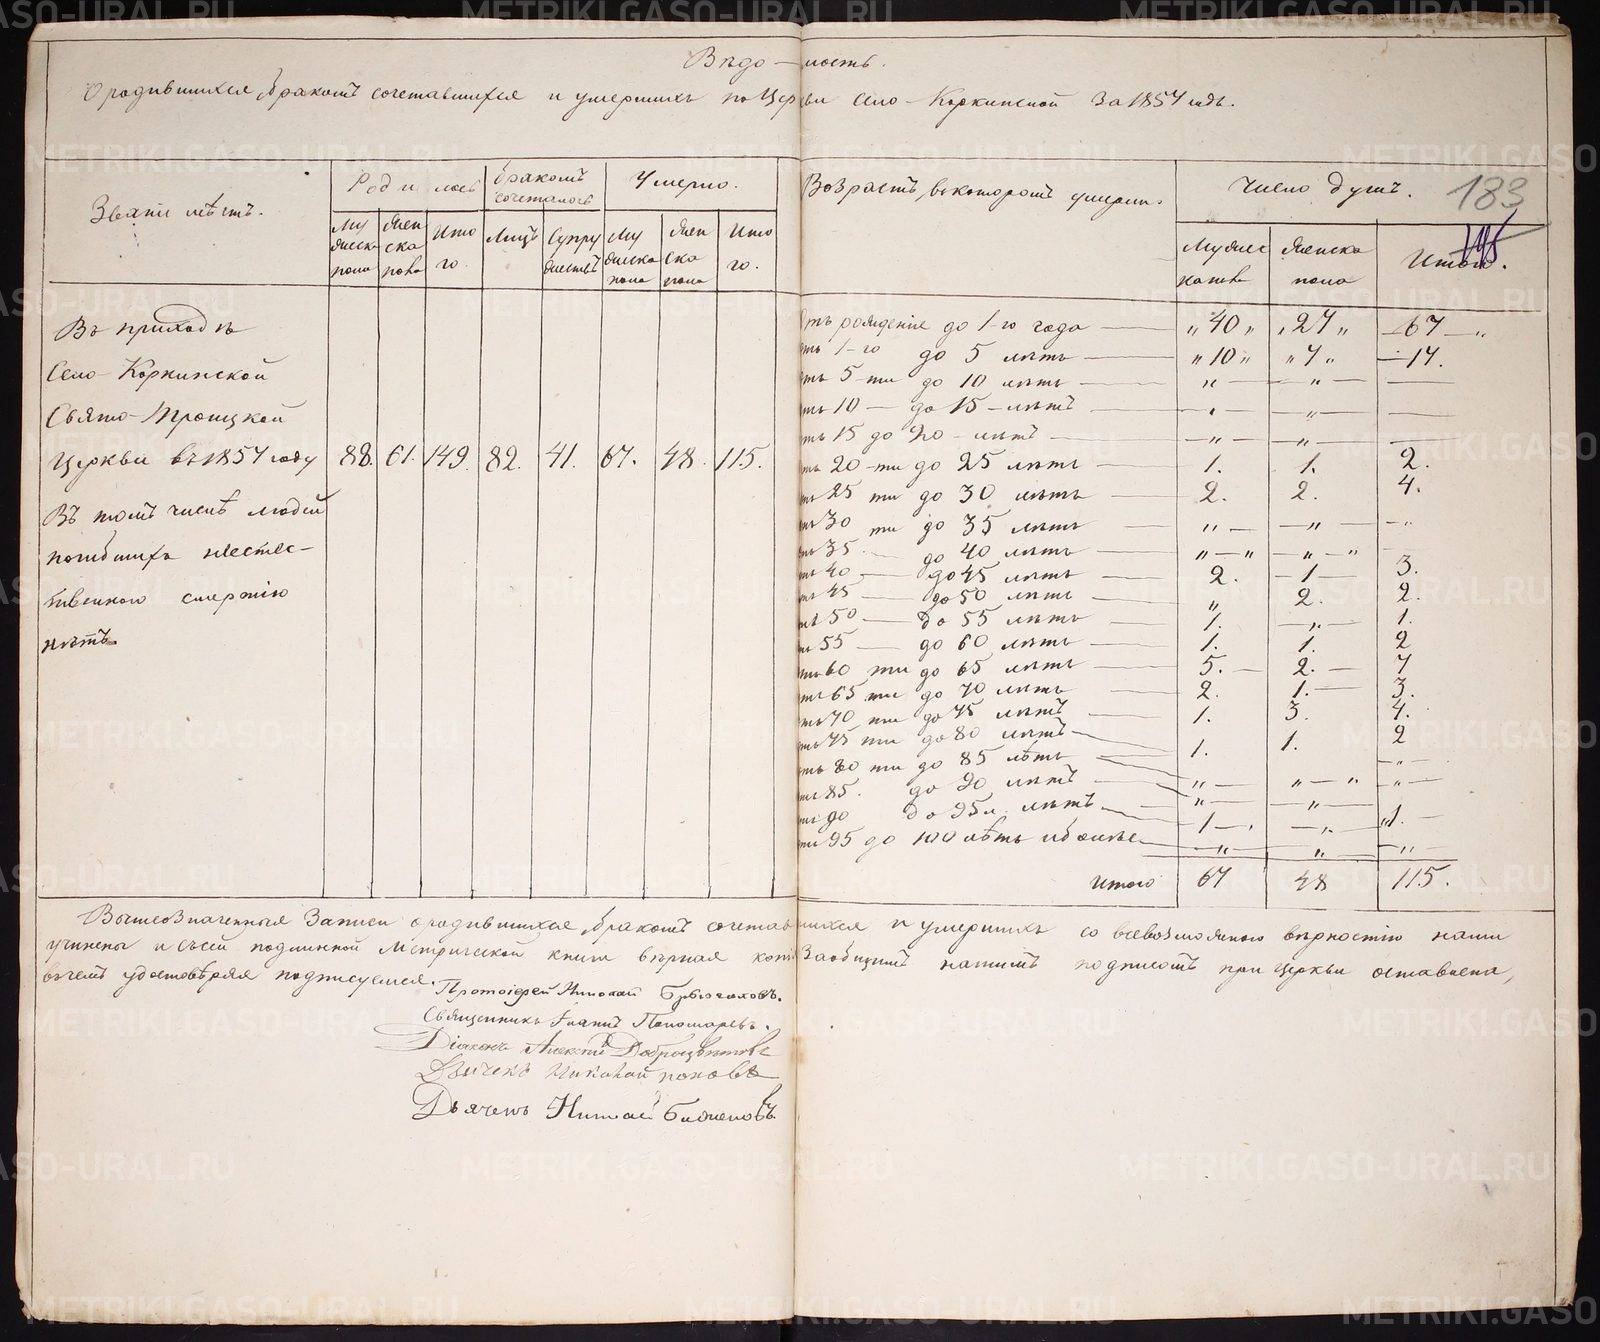 Вѣдо-мость.
О родившихся, бракомъ сочетавшихся и умершихъ по Церкви Село-Коркинской за 1857 годъ.
183
Званіе мѣстъ.
Родилось
Бракомъ сочеталось
Умерло.
Возрастъ, въ которомъ умерли.
Число душъ.
Мужеска пола
Женска пола
Итого.
Лицъ
Супружествъ
Мужеска пола
Женска пола
Итого.
Мужеска пола
Женска пола
Итого.
Въ приходѣ
Село-Коркинской
Свято-Троицкой
Церкви въ 1857 году 88. 61. 149. 82. 41. 67. 48. 115.
Въ томъ числѣ людей
погибшихъ неестес-
твенною смертію
нѣтъ.
отъ рожденіе до 1-го года — „ 40 „ „ 27 „ — 67 — „
отъ 1-го до 5 лѣтъ — „ 10 „ „ 7 „ — 17.
отъ 5-ти до 10 лѣтъ — „ — „ —
отъ 10 — до 15 - лѣтъ — „ — „ —
отъ 15 до 20 - лѣтъ — „ — „ —
отъ 20-ти до 25 лѣтъ — 1. 1. 2.
отъ 25 ти до 30 лѣтъ — 2. 2. 4.
отъ 30 ти до 35 лѣтъ — „ — „ — „
отъ 35 — до 40 лѣтъ — „ — „ — „ — „
отъ 40 — до 45 лѣтъ — 2. — 1 — 3.
отъ 45 — до 50 лѣтъ — „ 2. 2.
отъ 50 — до 55 лѣтъ — 1. — „ — 1.
отъ 55 — до 60 лѣтъ — 1. 1. 2
отъ 60 ти до 65 лѣтъ — 5. — 2. — 7
отъ 65 ти до 70 лѣтъ — 2. 1. — 3.
отъ 70 ти до 75 лѣтъ — 1. 3. 4.
отъ 75 ти до 80 лѣтъ — 1. 1. 2
отъ 80 ти до 85 лѣтъ — „ — „ — „ — „ —
отъ 85. до 90 лѣтъ — „ — „ — „ —
отъ 90 до 95 л. лѣтъ — 1 — „ — „ — „ 1. —
отъ 95 до 100 лѣтъ и болѣе — „ — „ — „ —
Итого 67 48 115.
Вышеозначенныя Записи о родившихся, бракомъ сочетавшихся и умершихъ со всевозможною вѣрностію нами
учинены и съ сей подлинной Метрической книги вѣрная копія за общимъ нашимъ подписомъ при Церкви оставлена,
въ чемъ удостовѣряя подписуемся.
Протоіерей Николай Брюхановъ.
Священникъ Іоаннъ Пономаревъ.
Діаконъ Алексій Доброцвѣтовъ
Дьячекъ Николай поповъ
Дьячекъ